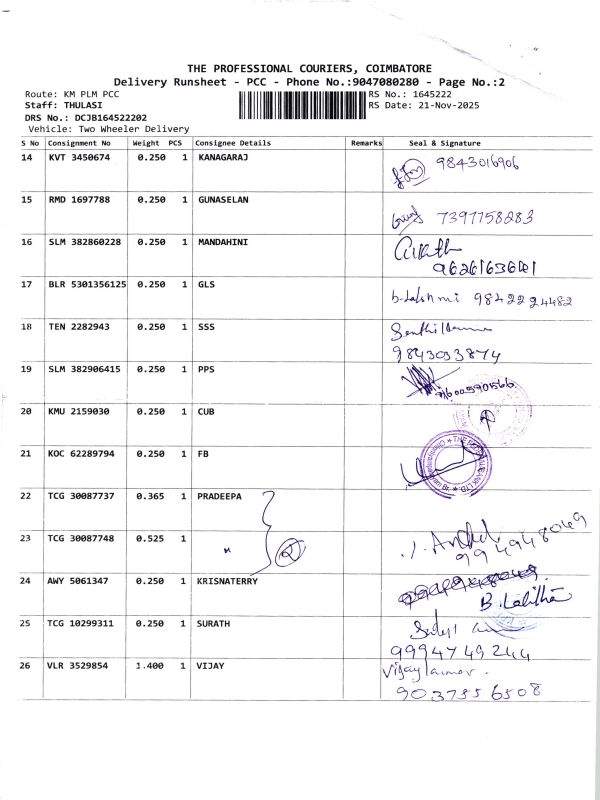 THE PROFESSIONAL COURIERS, COIMBATORE
Delivery Runsheet - PCC - Phone No.:9047080280 - Page No.:2
Route: KM PLM PCC RS No.: 1645222
Staff: THULASI RS Date: 21-Nov-2025
DRS No.: DCJB164522202
Vehicle: Two Wheeler Delivery
S No Consignment No Weight PCS Consignee Details Remarks Seal & Signature
14 KVT 3450674 0.250 1 KANAGARAJ 9843016906
15 RMD 1697788 0.250 1 GUNASELAN 7397758283
16 SLM 382860228 0.250 1 MANDAHINI
17 BLR 5301356125 0.250 1 GLS b.Lakshmi 9842224482
18 TEN 2282943 0.250 1 SSS
9843033874
19 SLM 382906415 0.250 1 PPS 9600590566
20 KMU 2159030 0.250 1 CUB
21 KOC 62289794 0.250 1 FB
22 TCG 30087737 0.365 1 PRADEEPA
23 TCG 30087748 0.525 1 "
9994948049
24 AWY 5061347 0.250 1 KRISNATERRY
B. Lalitha
25 TCG 10299311 0.250 1 SURATH
9994749244
26 VLR 3529854 1.400 1 VIJAY Vijay
9037556508